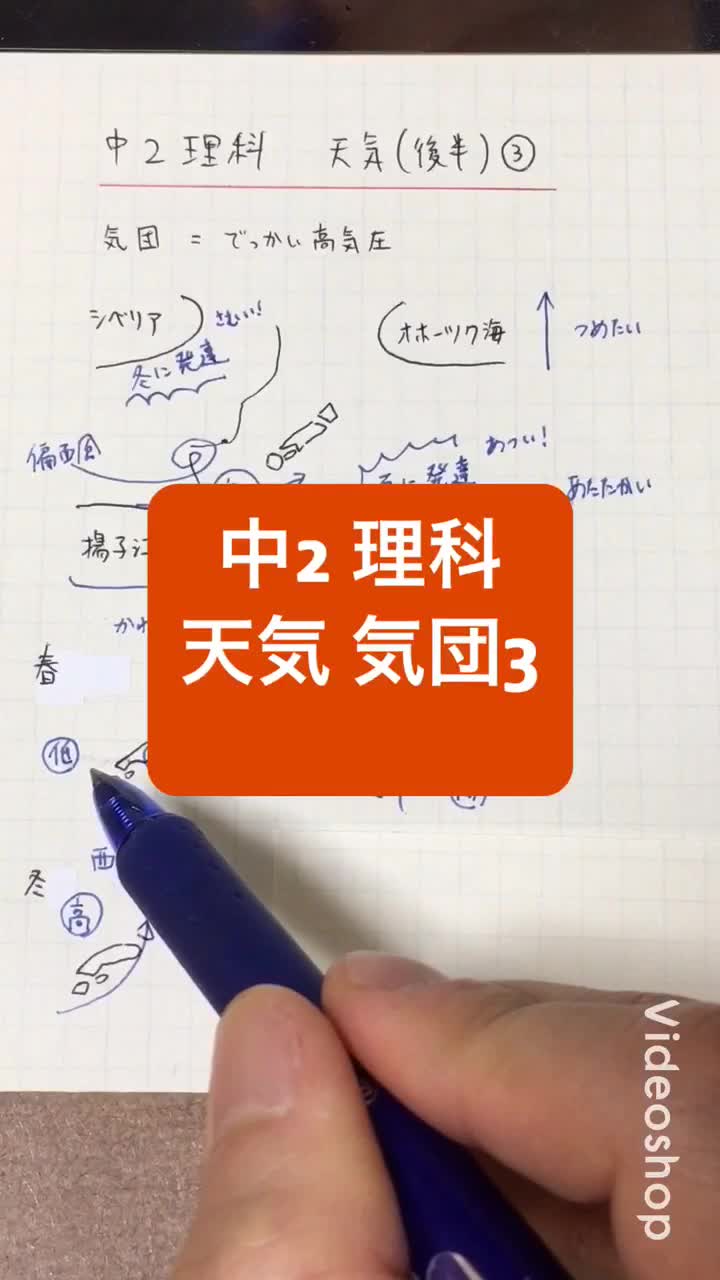 中2 理科 天気(後半)③
気団 = でっかい高気圧
シベリア
さむい!
オホーツク海
つめたい
冬に発達
偏西風
あつい!
に発達
あたたかい
揚子江
中2 理科
天気 気団3
春
低
西
冬
高
Videoshop